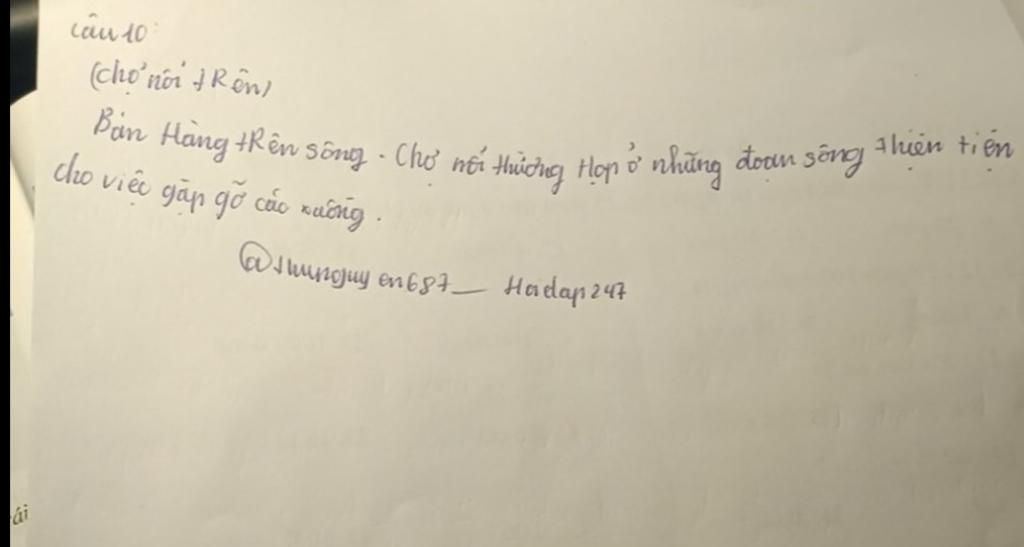 Câu 10:
(chợ nổi trên)
Bán Hàng trên sông. Chợ nổi thường Họp ở những đoạn sông thiện tiện
cho việc gặp gỡ các xuồng.
@thunguyen687_ Hoidap247
ái